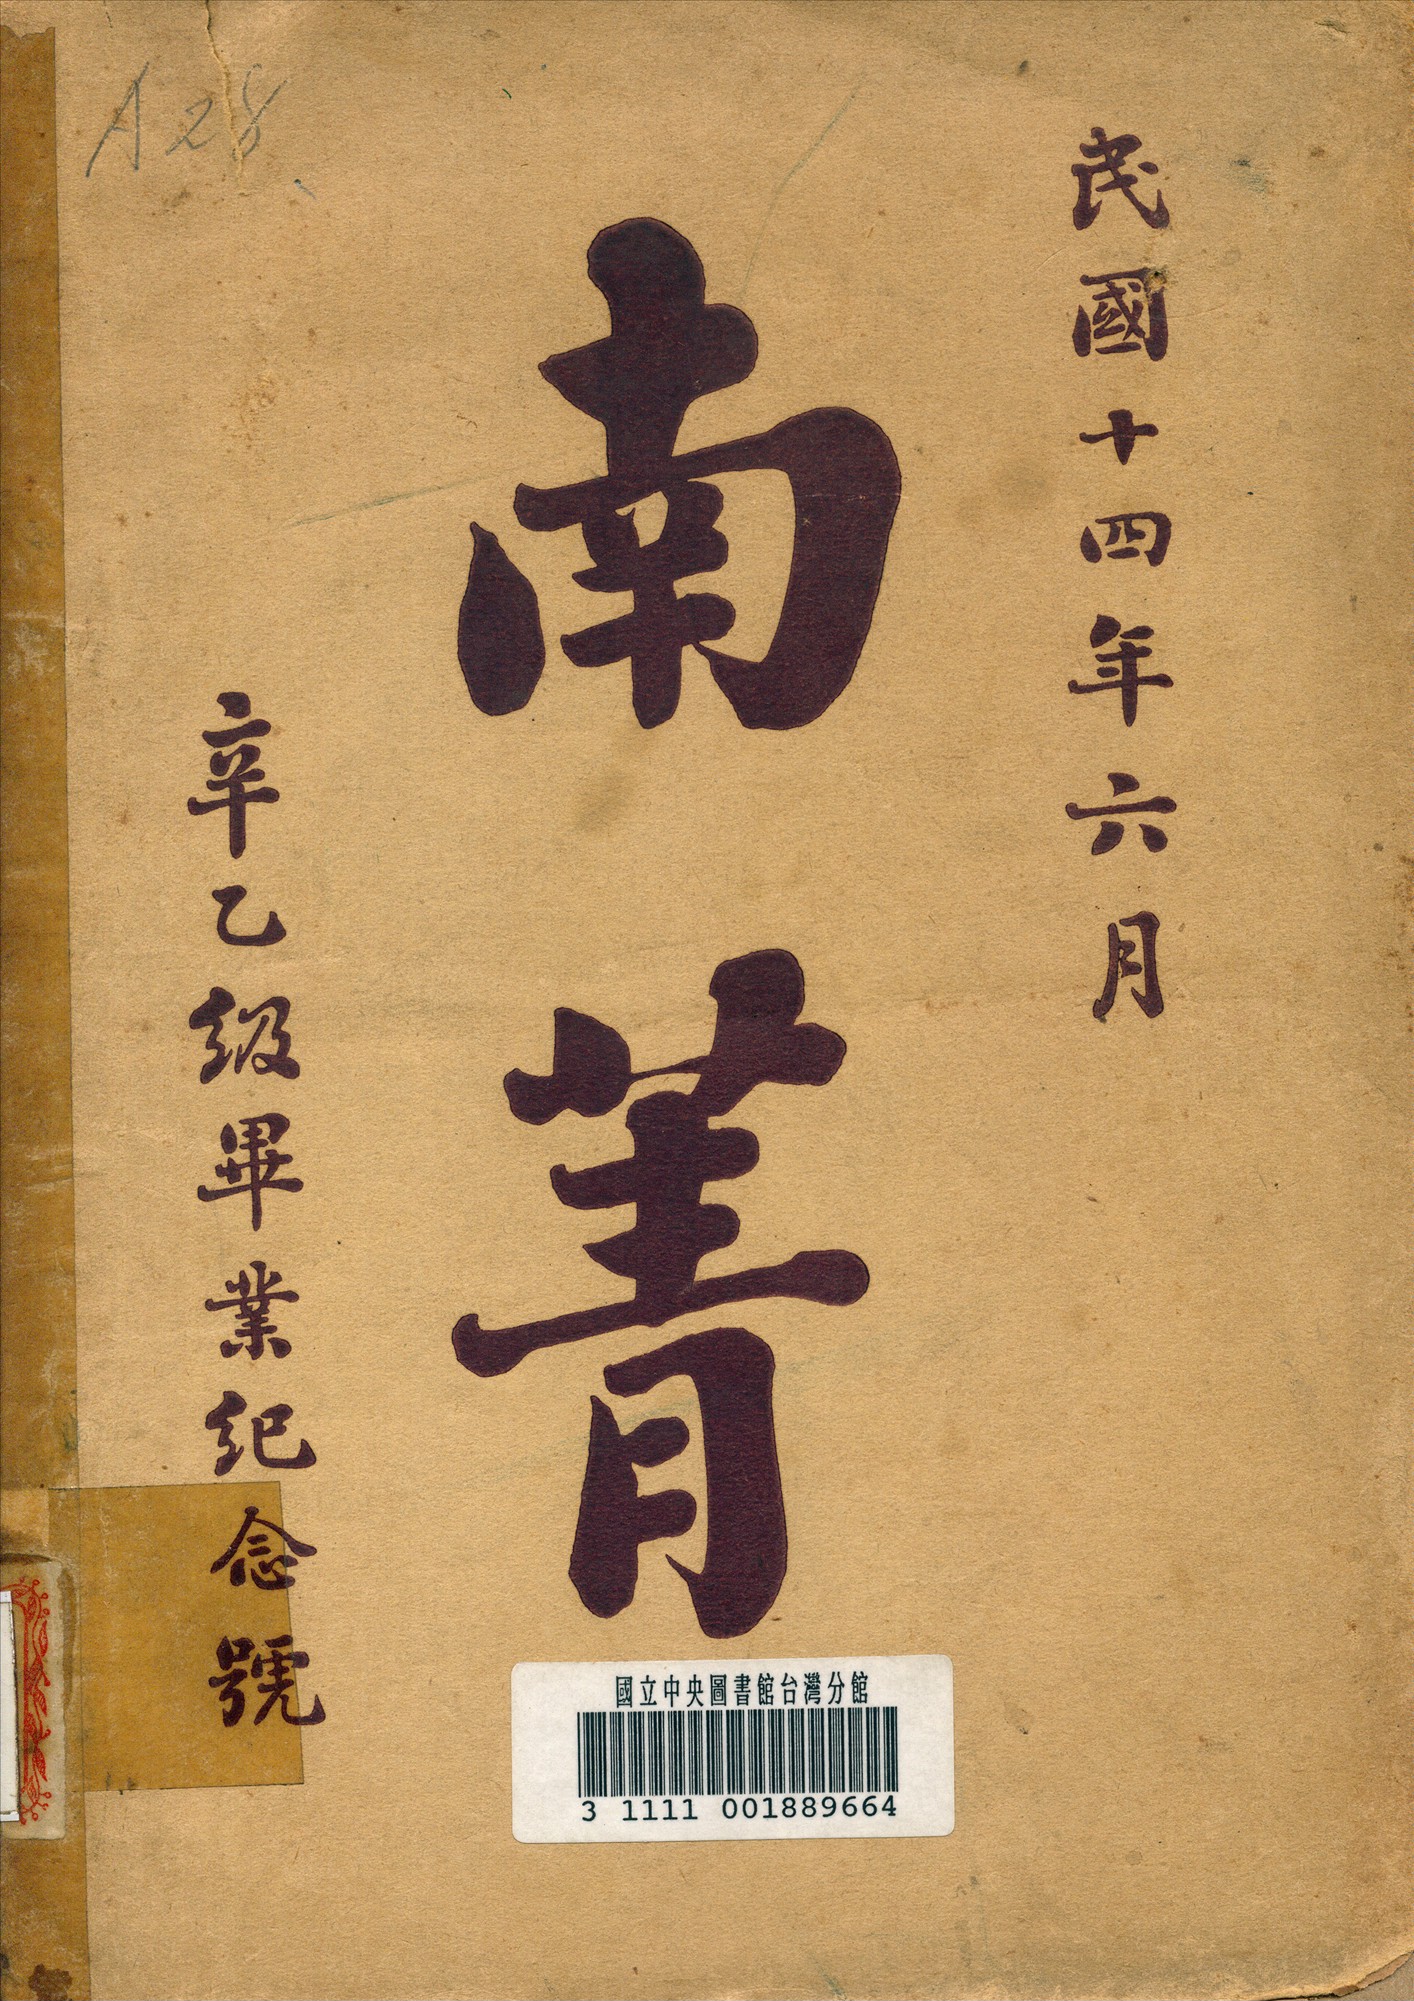 民國十四年六月
南菁
辛乙級畢業紀念號
A28
國立中央圖書館台灣分館
3 1111 001889664